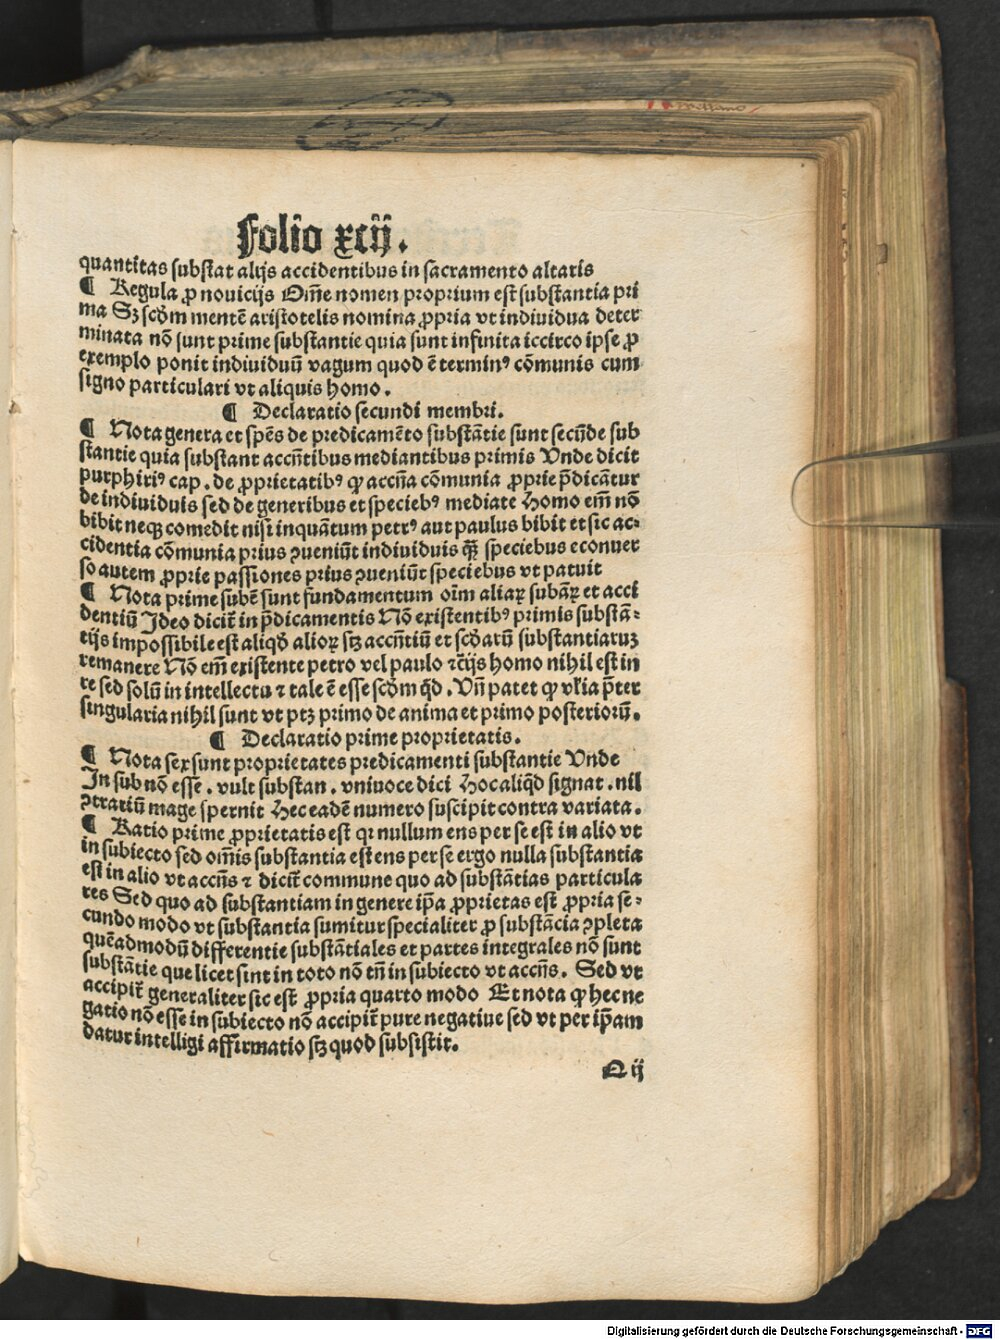 Folio xcij.
quantitas substat alijs accidentibus in sacramento altaris
¶ Regula ꝓ nouicijs Om̄e nomen proprium est substantia pri
ma Sꝫ scd̄m mentē aristotelis nomina ꝓpria vt indiuidua deter
minata nō sunt prime substantie quia sunt infinita iccirco ipse ꝓ
exemplo ponit indiuiduū vagum quod ē terminꝰ cōmunis cum
signo particulari vt aliquis homo.
¶ Declaratio secundi membri.
¶ Nota genera et spēs de predicamēto substātie sunt secūde sub
stantie quia substant accn̄tibus mediantibus primis Vnde dicit
purphiriꝰ cap. de ꝓprietatibꝰ ꝙ accn̄a cōmunia ꝓprie p̄dicātur
de indiuiduis sed de generibus et speciebꝰ mediate Homo em̄ nō
bibit neqꝫ comedit nisi inquātum petrꝰ aut paulus bibit et sic ac⸗
cidentia cōmunia prius ꝯueniūt indiuiduis q̄ꝫ speciebus econuer
so autem ꝓprie passiones prius ꝯueniūt speciebus vt patuit
¶ Nota prime subē sunt fundamentum oīm aliaꝝ subāꝝ et acci
dentiū Ideo dicit̄ in p̄dicamentis Nō existentibꝰ primis substā⸗
tijs impossibile est aliqd̄ alioꝝ sꝫ accn̄tiū et scd̄arū substantiaruꝫ
remanere Nō em̄ existente petro vel paulo ⁊c̄ijs homo nihil est in
re sed solū in intellectu ⁊ tale ē esse scd̄m qd̄. Vn̄ patet ꝙ vl̄ia p̄ter
singularia nihil sunt vt ptꝫ primo de anima et primo posteriorū.
¶ Declaratio prime proprietatis.
¶ Nota sex sunt proprietates predicamenti substantie Vnde
In sub nō esse. vult substan. vniuoce dici Hoc aliqd̄ signat. nil
ꝯtrariū mage spernit Hec eadē numero suscipit contra variata.
¶ Ratio prime ꝓprietatis est qꝛ nullum ens per se est in alio vt
in subiecto sed om̄is substantia est ens per se ergo nulla substantia
est in alio vt accn̄s ⁊ dicit̄ commune quo ad substātias particula
res Sed quo ad substantiam in genere ip̄a ꝓprietas est ꝓpria se⸗
cundo modo vt substantia sumitur specialiter ꝓ substācia ꝯpleta
quēadmodū differentie substātiales et partes integrales nō sunt
substātie que licet sint in toto nō tn̄ in subiecto vt accn̄s. Sed vt
accipit̄ generaliter sic est ꝓpria quarto modo Et nota ꝙ hec ne
gatio nō esse in subiecto nō accipit̄ pure negatiue sed vt per ip̄am
datur intelligi affirmatio sꝫ quod subsistit.
Q ij
Digitalisierung gefördert durch die Deutsche Forschungsgemeinschaft - DFG